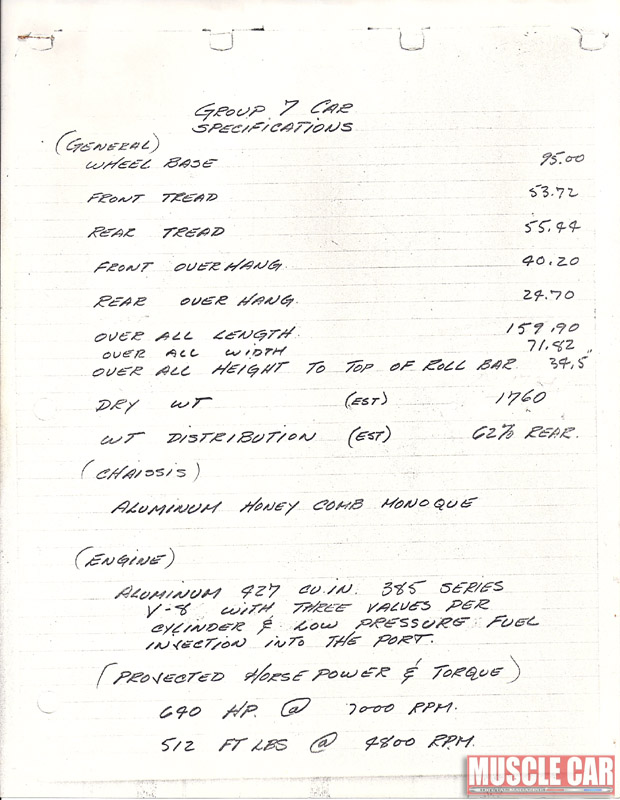 GROUP 7 CAR
SPECIFICATIONS
(GENERAL)
WHEEL BASE 95.00
FRONT TREAD 53.72
REAR TREAD 55.44
FRONT OVER HANG. 40.20
REAR OVER HANG. 24.70
OVER ALL LENGTH. 159.90
OVER ALL WIDTH 71.82
OVER ALL HEIGHT TO TOP OF ROLL BAR 34.5"
DRY WT (EST) 1760
WT DISTRIBUTION (EST) 62% REAR.
(CHAISSIS)
ALUMINUM HONEY COMB MONOQUE
(ENGINE)
ALUMINUM 427 CU.IN. 385 SERIES
V-8 WITH THREE VALUES PER
CYLINDER & LOW PRESSURE FUEL
INJECTION INTO THE PORT.
(PROJECTED HORSE POWER & TORQUE)
640 HP. @ 7000 RPM.
512 FT LBS @ 4800 RPM.
MUSCLE CAR